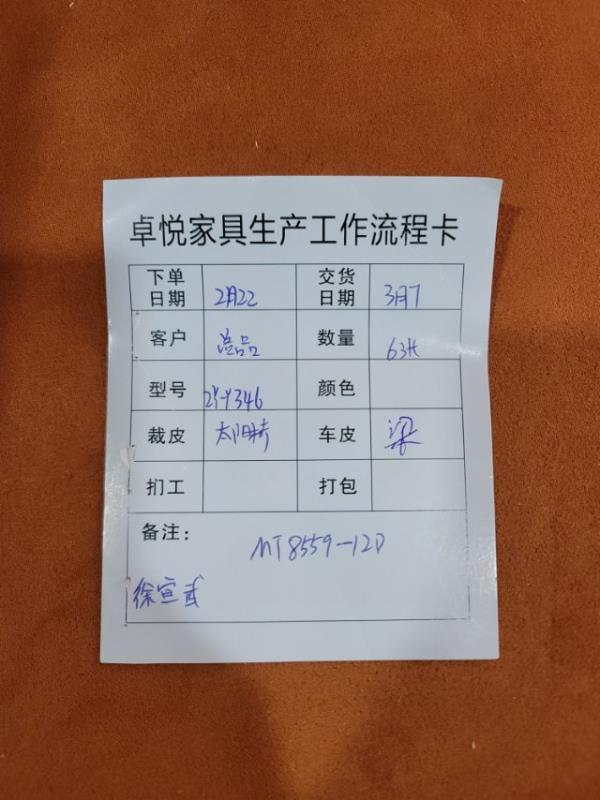 卓悦家具生产工作流程卡
下单日期 2月22 交货日期 3月7
客户 数量 63件
型号 ZY-Y346 颜色
裁皮 车皮 梁
扪工 打包
备注:
MT8559-12D
徐宣武